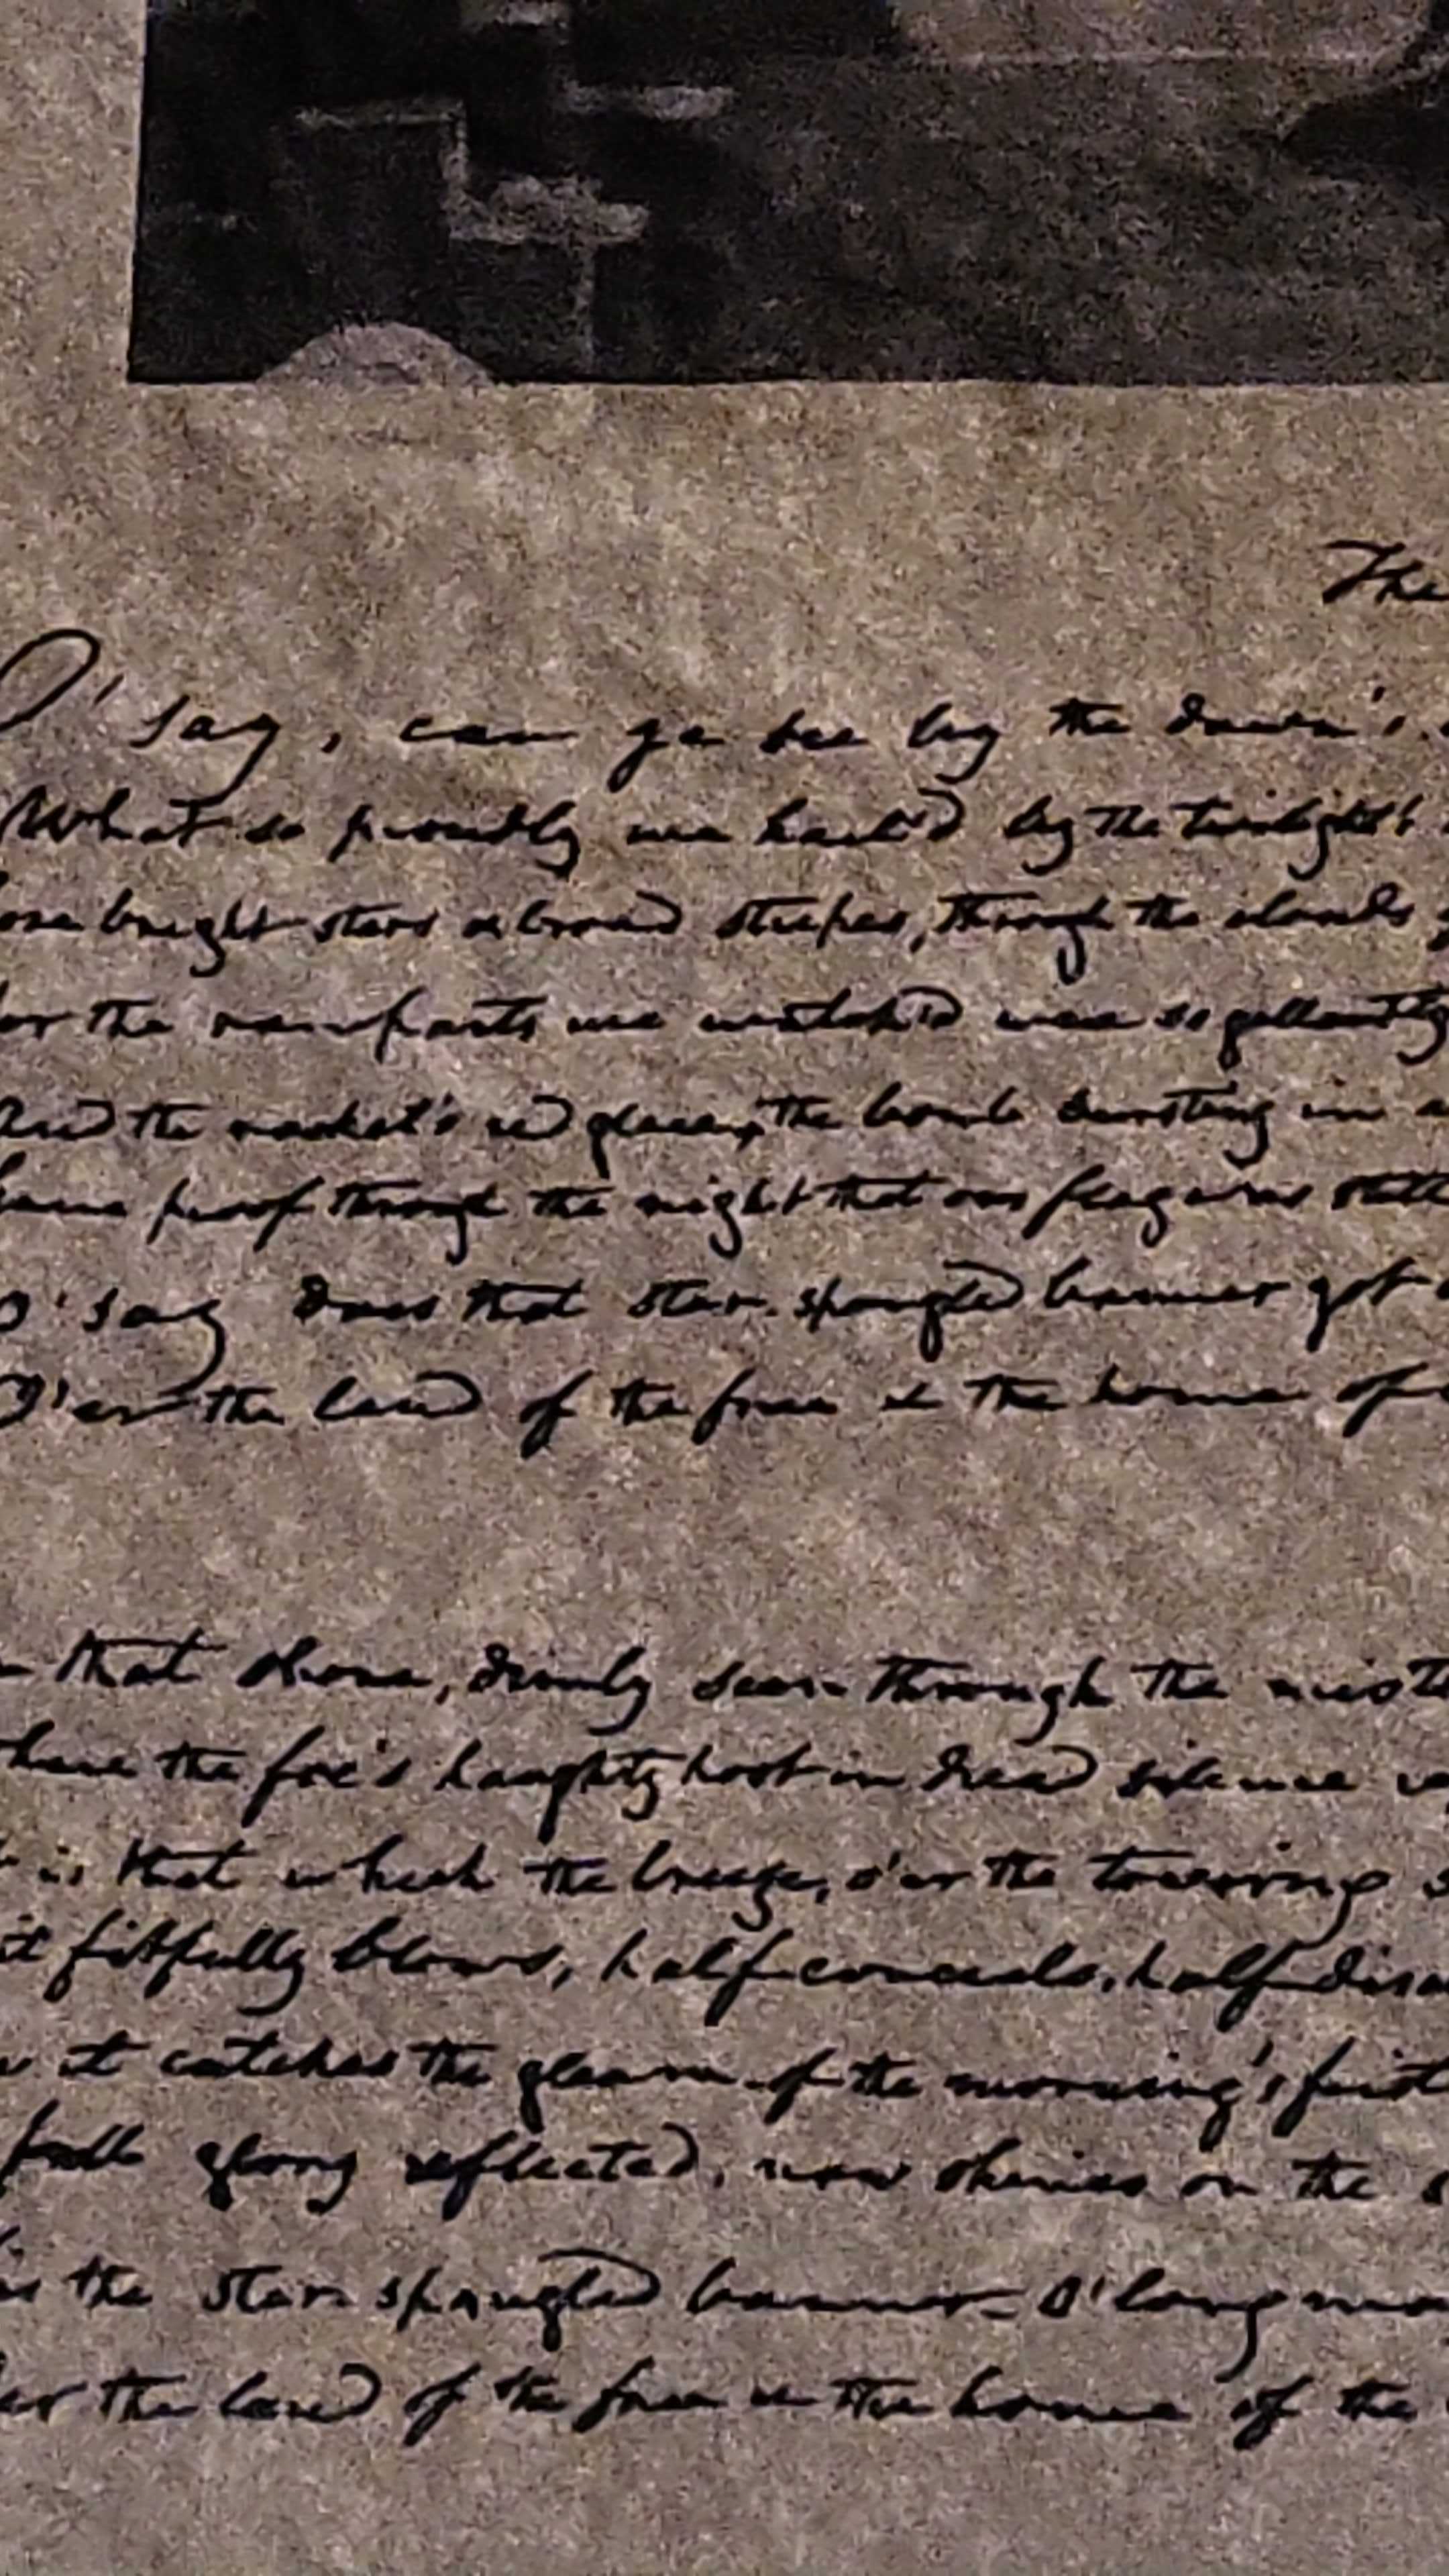 The
O' say, can ye see by the dawn's
What so proudly we hail'd by the twilight's
bright stars & broad stripes, through the clouds
or the ramparts we watch'd were so gallantly
And the rocket's red glare, the bomb bursting in
proof through the night that our flag was still
O' say does that star-spangled banner yet
O'er the land of the free & the home of
that shore, dimly seen through the mist
where the foe's haughty host in dread silence
is that which the breeze, o'er the towering
it fitfully blows, half conceals, half
it catches the gleam of the morning's first
full glory reflected, now shines on the
is the star-spangled banner - O' long
er the land of the free & the home of the